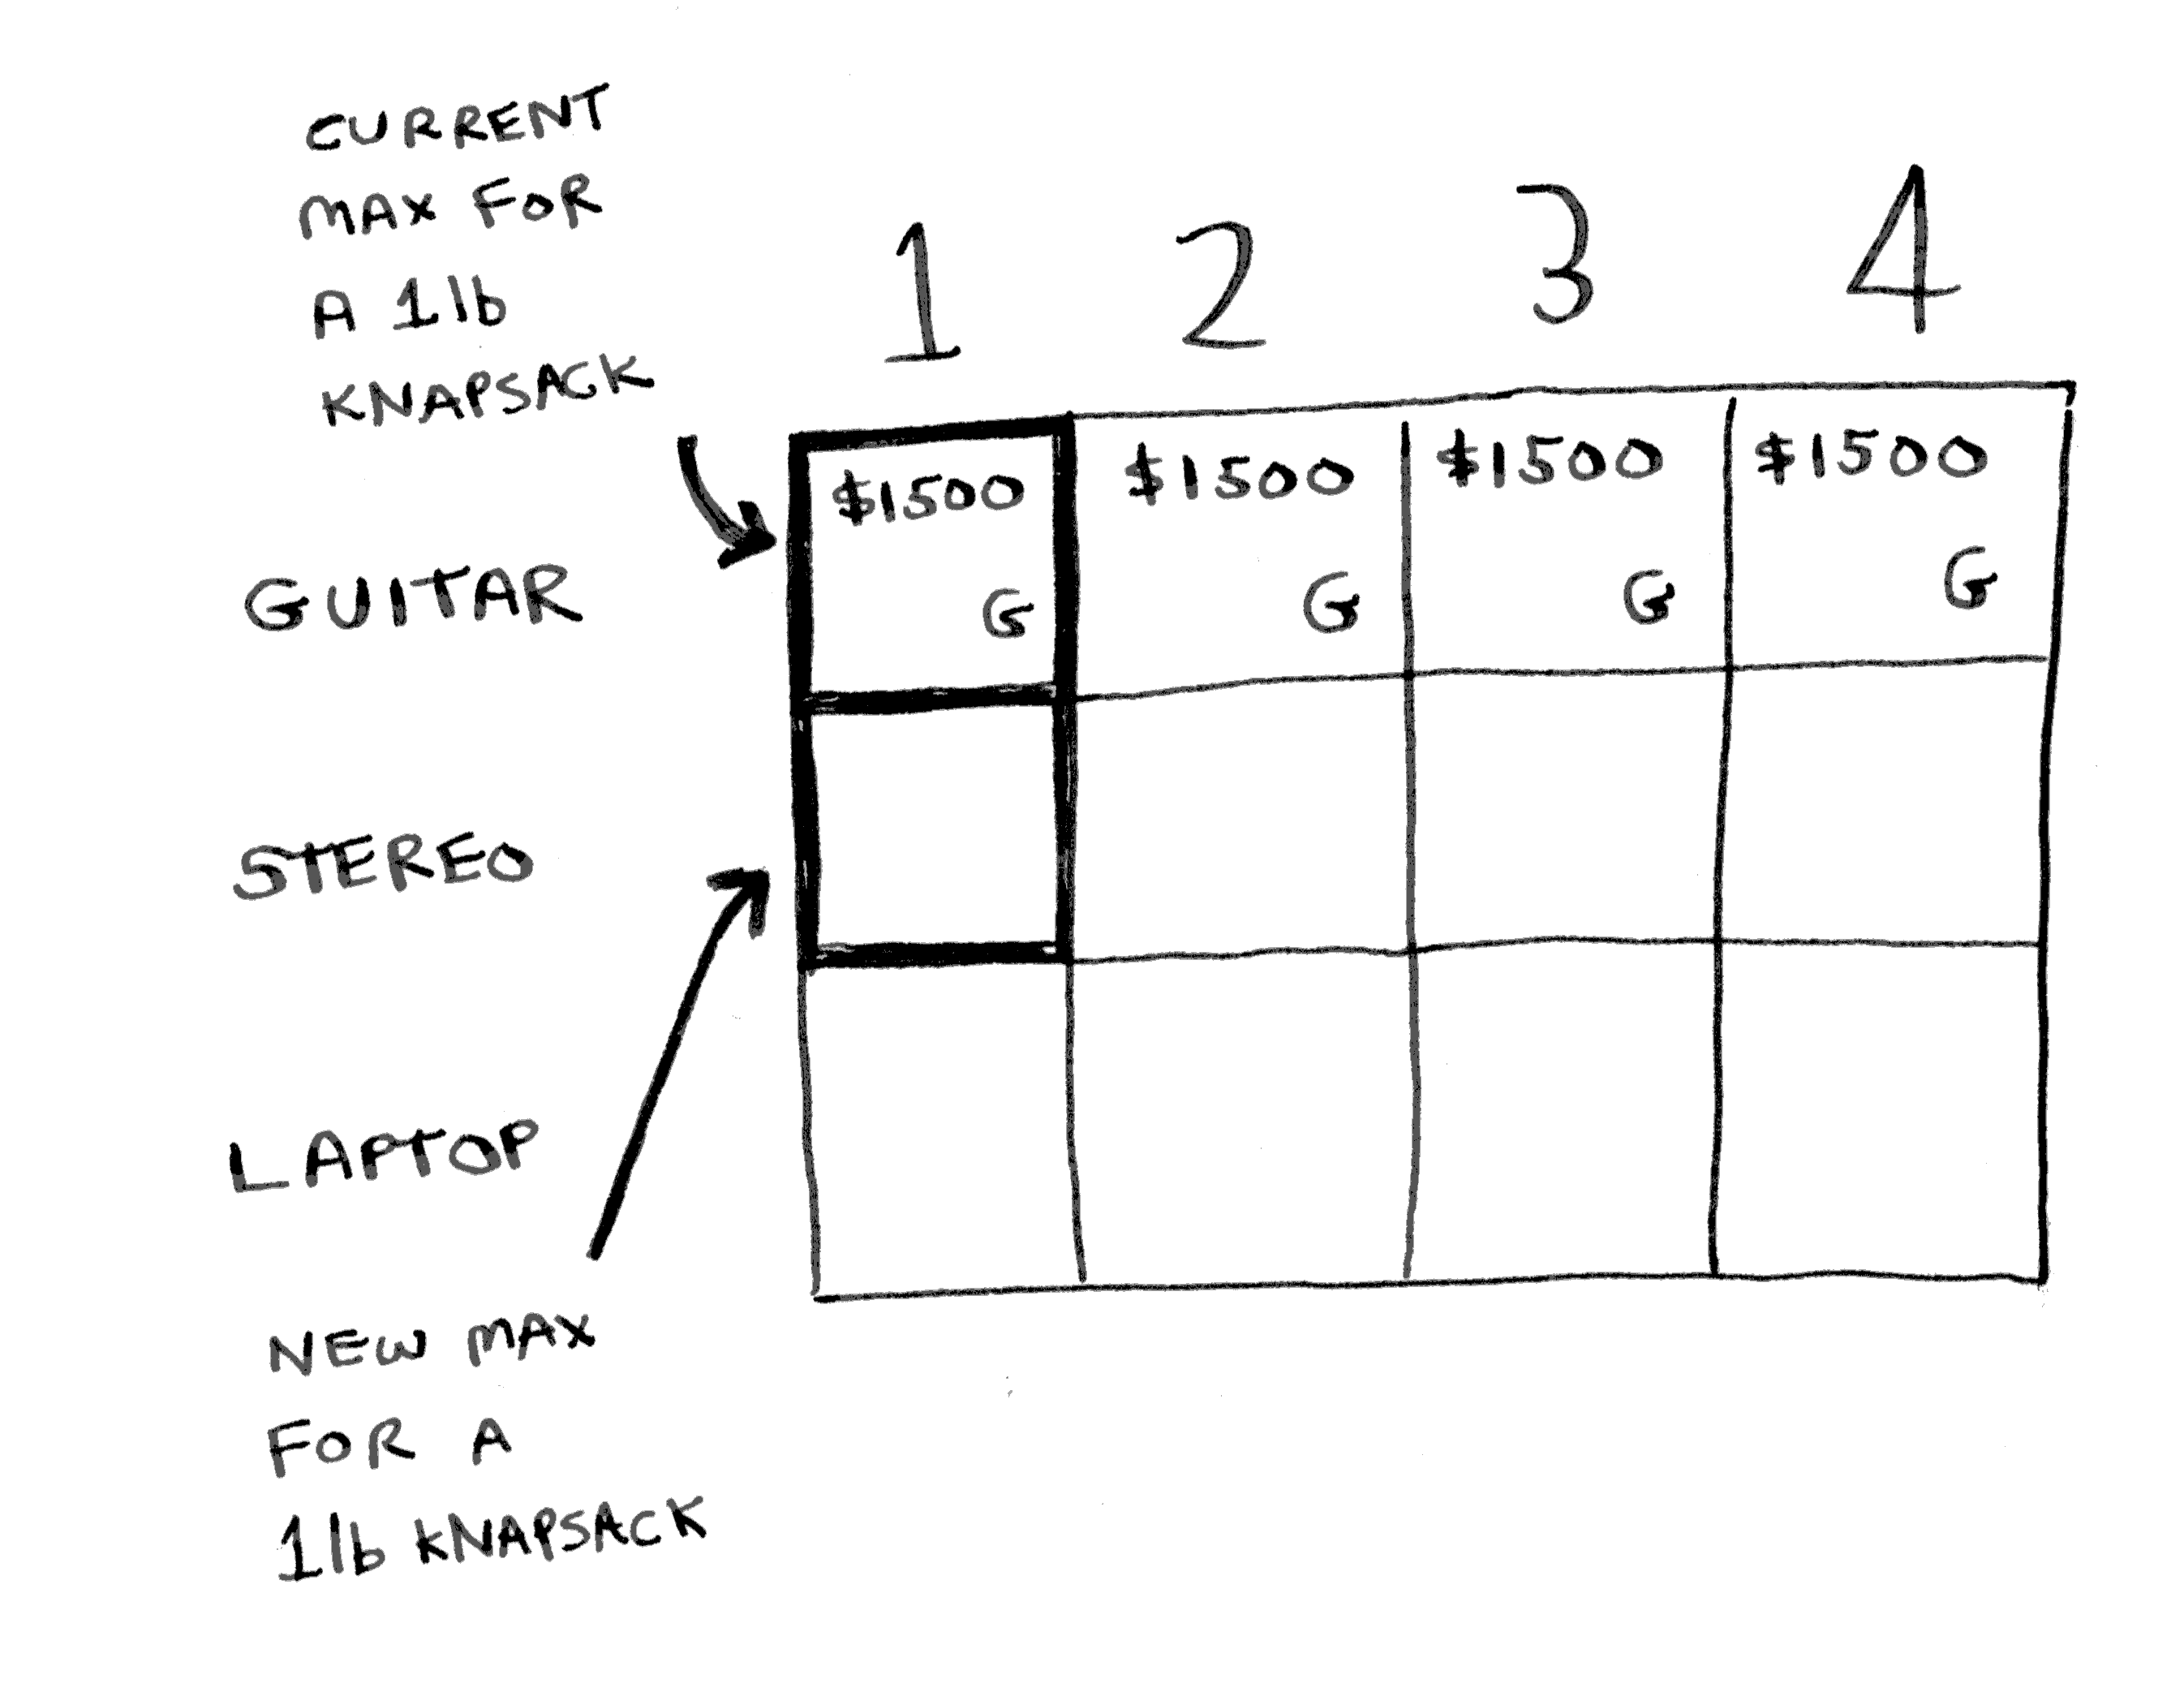 CURRENT
MAX FOR
A 1lb
KNAPSACK
1 2 3 4
GUITAR $1500 $1500 $1500 $1500
G G G G
STEREO
LAPTOP
NEW MAX
FOR A
1lb KNAPSACK